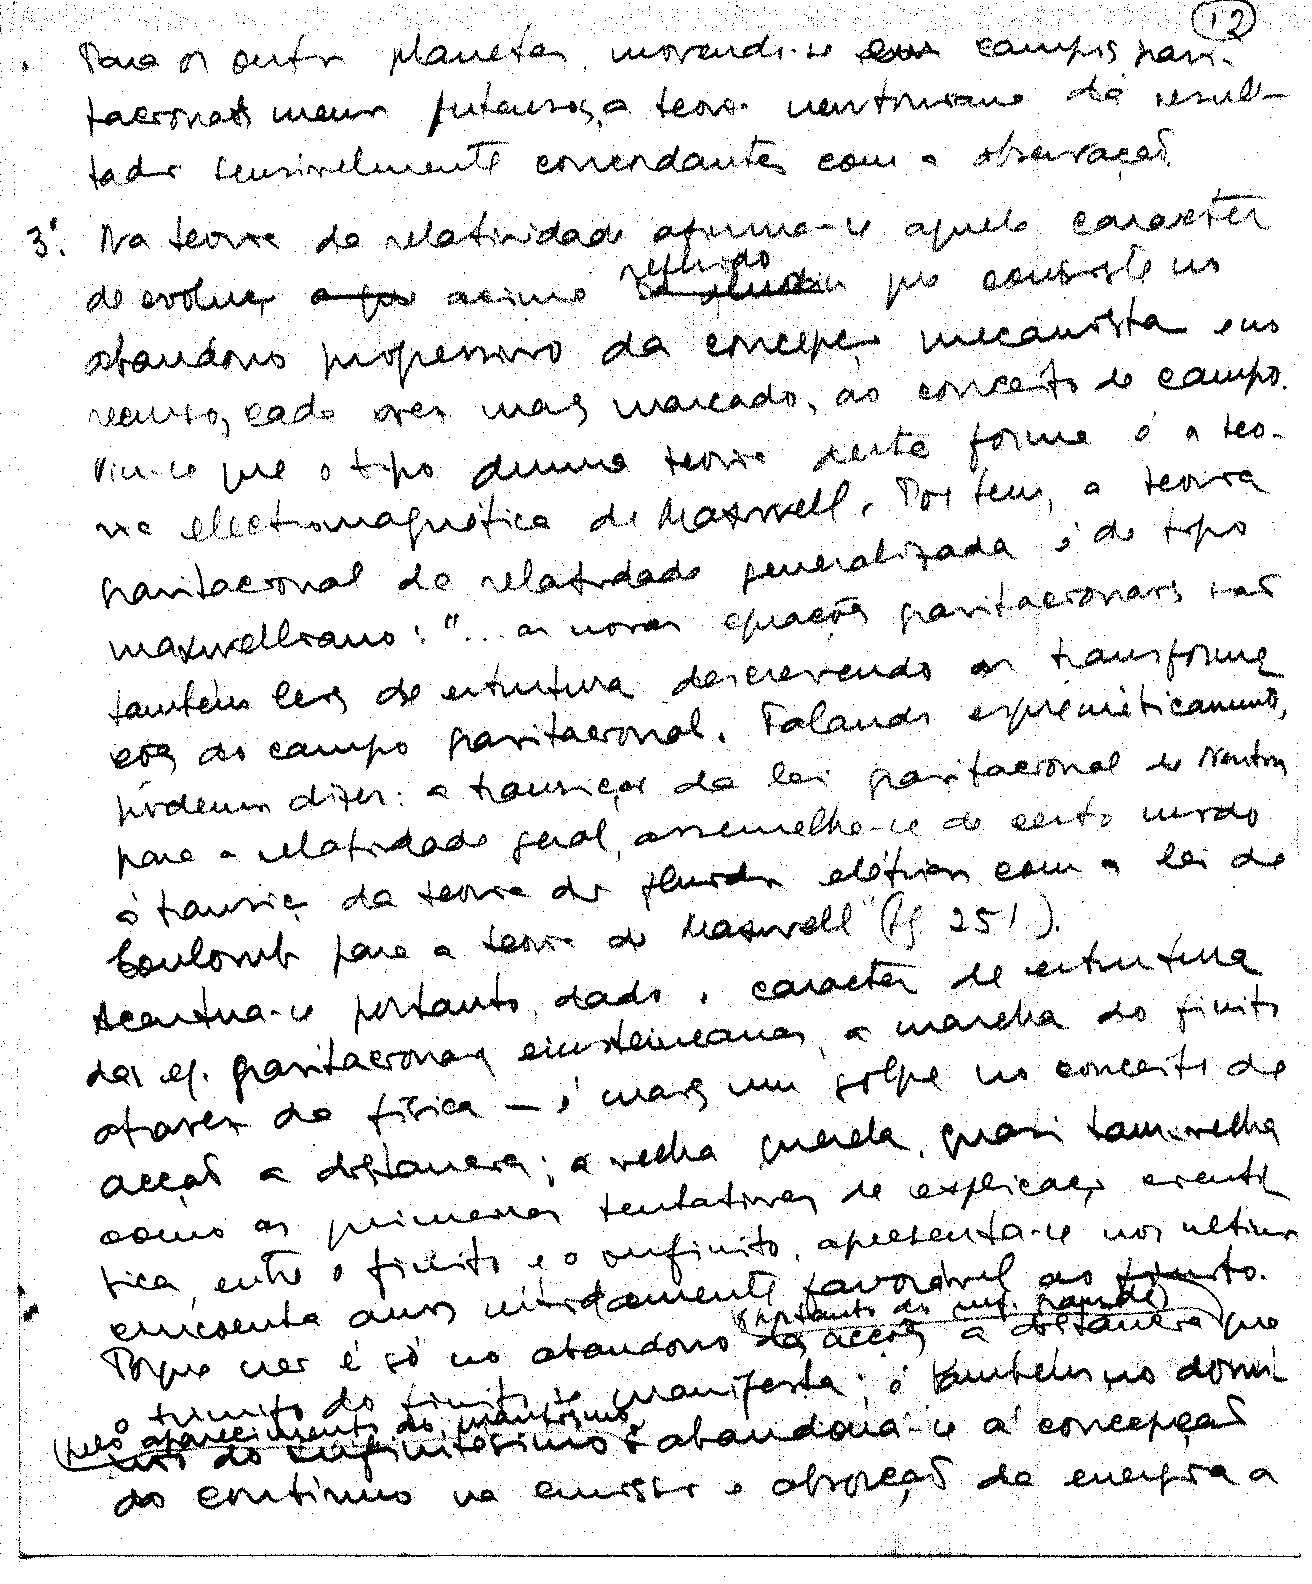 12
Para os outros planetas, movendo-se em campos gravi-
tacionais menos intensos, a teoria newtoniana dá resul-
tados sensivelmente concordantes com a observação.
3º. Na teoria da relatividade afirma-se aquele caracter
de evolução a que acima referido que consiste no
abandono progressivo da concepção mecanista e no
recurso, cada vez mais marcado, ao conceito de campo.
Viu-se que o tipo duma teoria desta forma é a teo-
ria electromagnética de Maxwell. Pois bem, a teoria
gravitacional da relatividade generalizada é do tipo
maxwelliano: "... as novas equações gravitacionais são
também leis de estrutura descrevendo as transforma
ções do campo gravitacional. Falando esquemàticamente,
podemos dizer: a transição da lei gravitacional de Newton
para a relatividade geral, assemelha-se de certo modo
à transição da teoria dos fluidos elétricos com a lei de
Coulomb para a teoria de Maxwell" (Pg 251).
Acentua-se portanto, dado o caracter de estrutura
das eq. gravitacionais einsteineanas, a marcha do finito
através da física — é mais um golpe no conceito de
acção a distancia; a velha querela, quasi tam velha
como as primeiras tentativas de explicação cientí
fica, entre o finito e o infinito, apresenta-se nos ultimos
cincoenta anos nitidamente favorável ao finito.
(portanto do inf. grande)
Porque não é só no abandono da acção a distancia que
o triunfo do finito se manifesta; é também, no domí
(pelo aparecimento do
nio do infinitésimo: abandona-se a concepção
do continuo na emissão e absorção da energia a